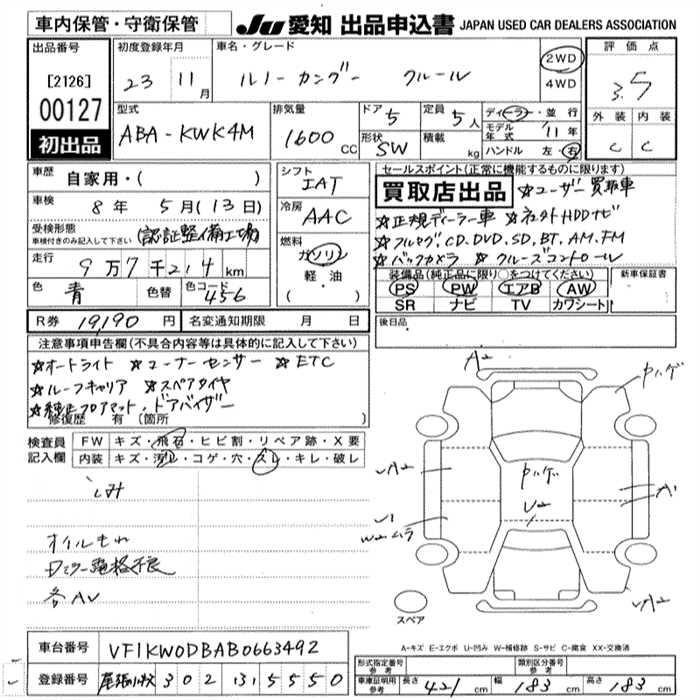 車内保管・守衛保管
JU 愛知 出品申込書 JAPAN USED CAR DEALERS ASSOCIATION
出品番号
[2126]
00127
初出品
初度登録年月
23 年 11 月
車名・グレード
ルノー カングー クルール
2WD
4WD
評価点
3.5
外装 内装
C C
型式
ABA-KWK4M
排気量
1600 CC
ドア 5
形状 SW
定員 5 人
積載 kg
ディーラー・並行
モデル年式 '11 年
ハンドル 左・右
車歴
自家用・( )
車検
8 年 5 月 (13 日)
受検形態
車検付きのみ記入して下さい
(認証整備工場)
走行
9 万 7 千 214 km
色
青
色替
色コード
456
シフト
IAT
冷房
AAC
燃料
ガソリン
軽・油
( )
セールスポイント(正常に機能するものに限ります)
買取店出品 ☆ユーザー買取車
☆正規ディーラー車 ☆ HDDナビ
☆フルセグ,CD,DVD,SD,BT,AM,FM
☆バックカメラ ☆クルーズコントロール
装備品(純正品に限り○をつけてください)
PS PW エアB AW
SR ナビ TV カワシート
新車保証書
R券 19,190 円
名変通知期限 月 日
後日品
注意事項申告欄(不具合内容等は具体的に記入して下さい)
☆オートライト ☆コーナーセンサー ☆ETC
☆ルーフキャリア ☆スペアタイヤ
☆純正フロアマット・ドアバイザー
修復歴 有 (箇所
検査員
記入欄
FW キズ・飛石・ヒビ割・リペア跡・X要
内装 キズ・汚レ・コゲ・穴・スレ・キレ・破レ
シミ
オイルもれ
Dミラー電格不良
各AU
A2
中ハゲ
UA2
中ハゲ
U2
A1
U1
W2ムラ
UA2
スペアー
A-キズ E-エクボ U-凹み W-補修跡 S-サビ C-腐食 XX-交換済
車台番号 VF1KW0DBAB0663492
登録番号 尾張小牧 302 
形式指定番号
参考
類別区分番号
参考
車庫証明用
参考
長さ 421 cm 幅 183 cm 高さ 183 cm